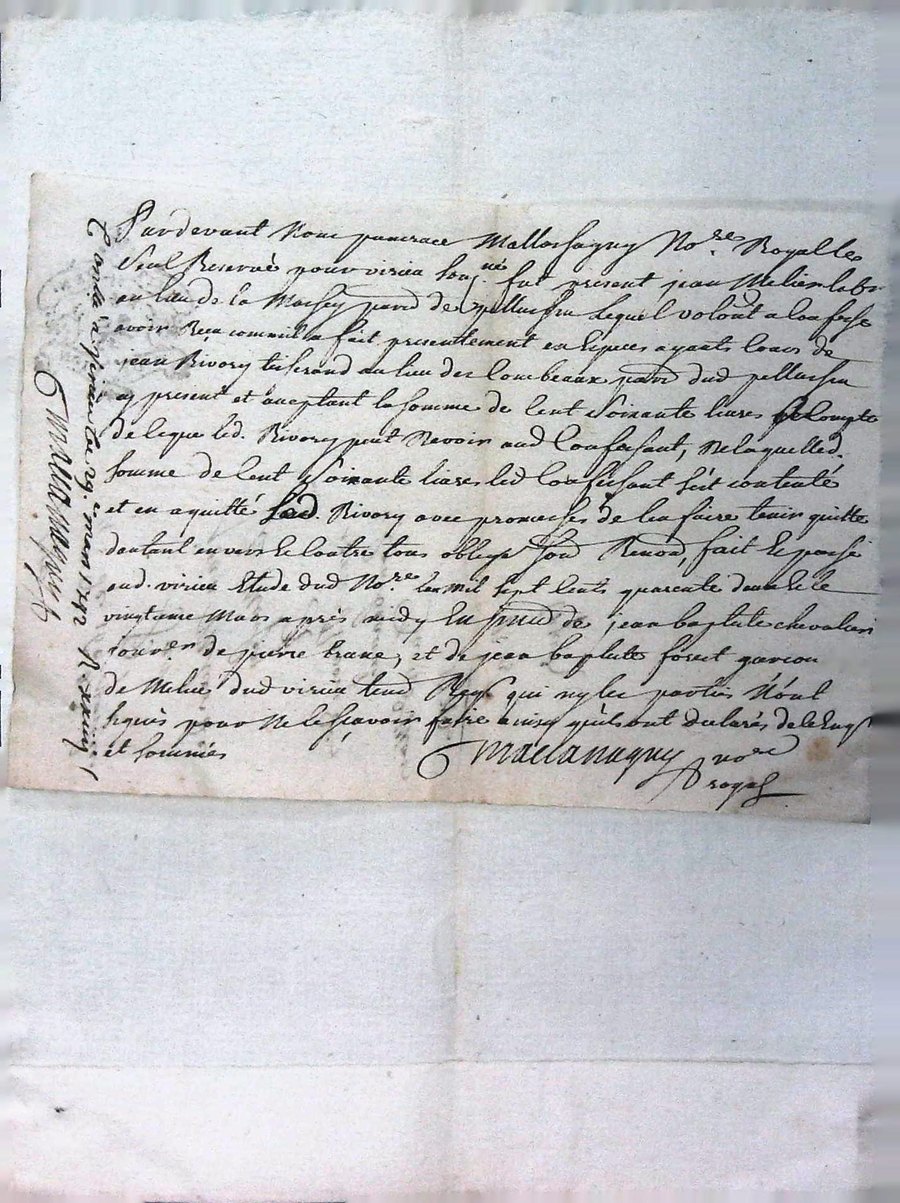 Pardevant Nous pancrace Mallassagny No.re Royalle
Seul Reservé pour virieu sous.né fut present jean Melier labr
au lieu de la Maisey par.d de pellussin lequel volont a confessé
avoir Reçu comme il a fait presentlement en Especes ayants cours de
jean Rivory tisserand au lieu des Combeaux par.d dud pellussin
cy present et acceptant la somme de Cent Soixante livres
de le que led. Rivory peut Revoir aud Confessant, De laquelled.
somme de Cent Soixante livres led Confessant s'ét contenté
et en a quitté led. Rivory avec promesses de l'en faire tenir quitte
dautant envers Et contre tous oblige soud Renon, fait Et passé
aud. virieu Etude dud No.re l'an Mil sept Cents quarente deux Et le
vingtieme Mars après midy En pnce de jean baptiste chevalier
de pierre brave, et de jean baptiste foreit garcon
de dud virieu temd Reqs qui ny les parties N'ont
signés pour Ne le sçavoir faire ainsy qu'ils ont declarés de ce Enqs
et sommés
Mallassagny no.re
royal
Conlé à virieu ce 29.e mars 1742 R
Mallassagny